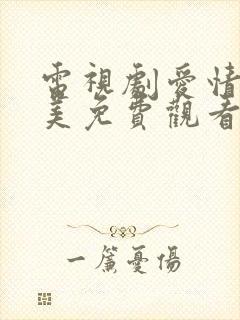 電視劇愛情
美免費觀看
一簾憂傷